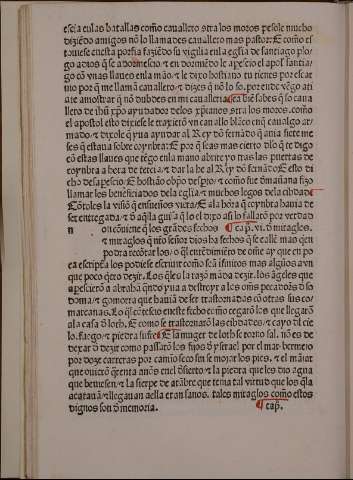 escia enlas batallas como cauallero ꝯtra los moros pesole mucho
diziẽdo amigos nõ lo llamedes cauallero mas pastor: ⁊ como es
touiese enesta porfia faziẽdo su vigilia enla eglĩa de santiago plo
go a dios q̃ se adormesio ⁊ en dormiẽdo le apescio el apol santia
go cõ vnas llaues enla mãо ⁊ le dixo hostiano tu tienes por escar
nio por q̃ me llamã cauallero ⁊ dizes q̃ nõ lo so. por ende vẽgo ati
ate amostrar q̃ nõ dubdes en mi caualleria ca biẽ sabes q̃ so caua
llero de ihũ xp̃o ayudador de los xp̃ianos ꝯtra los moros. como
el apostol esto dixiese le traxierõ vn cauallo blãco enq̃ caualgo ar
mado ⁊ dixole q̃ yua ayudar al Rey dõ fernãdo q̃ auia siete me
ses q̃ estaua sobre coynbra: ⁊ por q̃ seas mas cierto dilo q̃ te digo
cõ estas llaues que tẽgo enla mano abrire yo tras las puertas de
coynbra a hora de tercia ⁊ dar la he al Rey dõ fernãdo ⁊ esto di
cho desapescio: ⁊ hostião obp̃o desp̃to ⁊ como fue dmãñana fizo
llamar los beneficiados dela eglia ⁊ muchos legos dela cibdad
⁊ cõtoles la visiõ q̃ en sueños viera ⁊ ala hora q̃ coynbra hauia de
ser entregada ⁊ d̃ aq̃lla guisa q̃ lo el dixo asi lo fallarõ por verdad
n on conuiene q̃ los grandes fechos ¶ cap̃. vi. d̃ miraglos.
⁊ miraglos q̃ nr̃o señor dios ha fechos q̃ se calle mao q̃en
podra recõtar los / o q̃l entẽdimiẽto de om̃e ay que en po
ca escriptã los podiese escriuir como sea ifinitos mas algũos avn
que poco q̃ero dezir. Los q̃le o la razõ mãda dezir. los ãgeles que
apescierõ a abraha q̃ndo yua a destruyr alos om̃s pecadores d̃ so
doma ⁊ gomorra que hauiã de ser trastornadas cõ otras sus co-
marcanas. Lo q̃l cõtescio eneste fecho como cegarõ los que llegarõ
ala casa d̃ loth. ⁊ como se trastornarõ las cibdades ⁊ cayo dl cie
lo. fuego ⁊ piedra sufre ⁊ la muger de loth se torno sal. nõ es de
dexar d̃ dezir como passarõ los fijos d̃ ysrael por el mar bermejo
por doze carreras por camio seco sin se mojar los pies. ⁊ el mãnat
que ouierõ q̃renta años enel d̃sierto ⁊ la piedra que les dio agua
que beuiesen ⁊ la sierpe de arãbre que tenia tal virtud que los q̃la
acatauã ⁊ llegauan a ella eran sanos. tales miraglos como estos
dignos son d̃ memoria. ¶ cap̃.